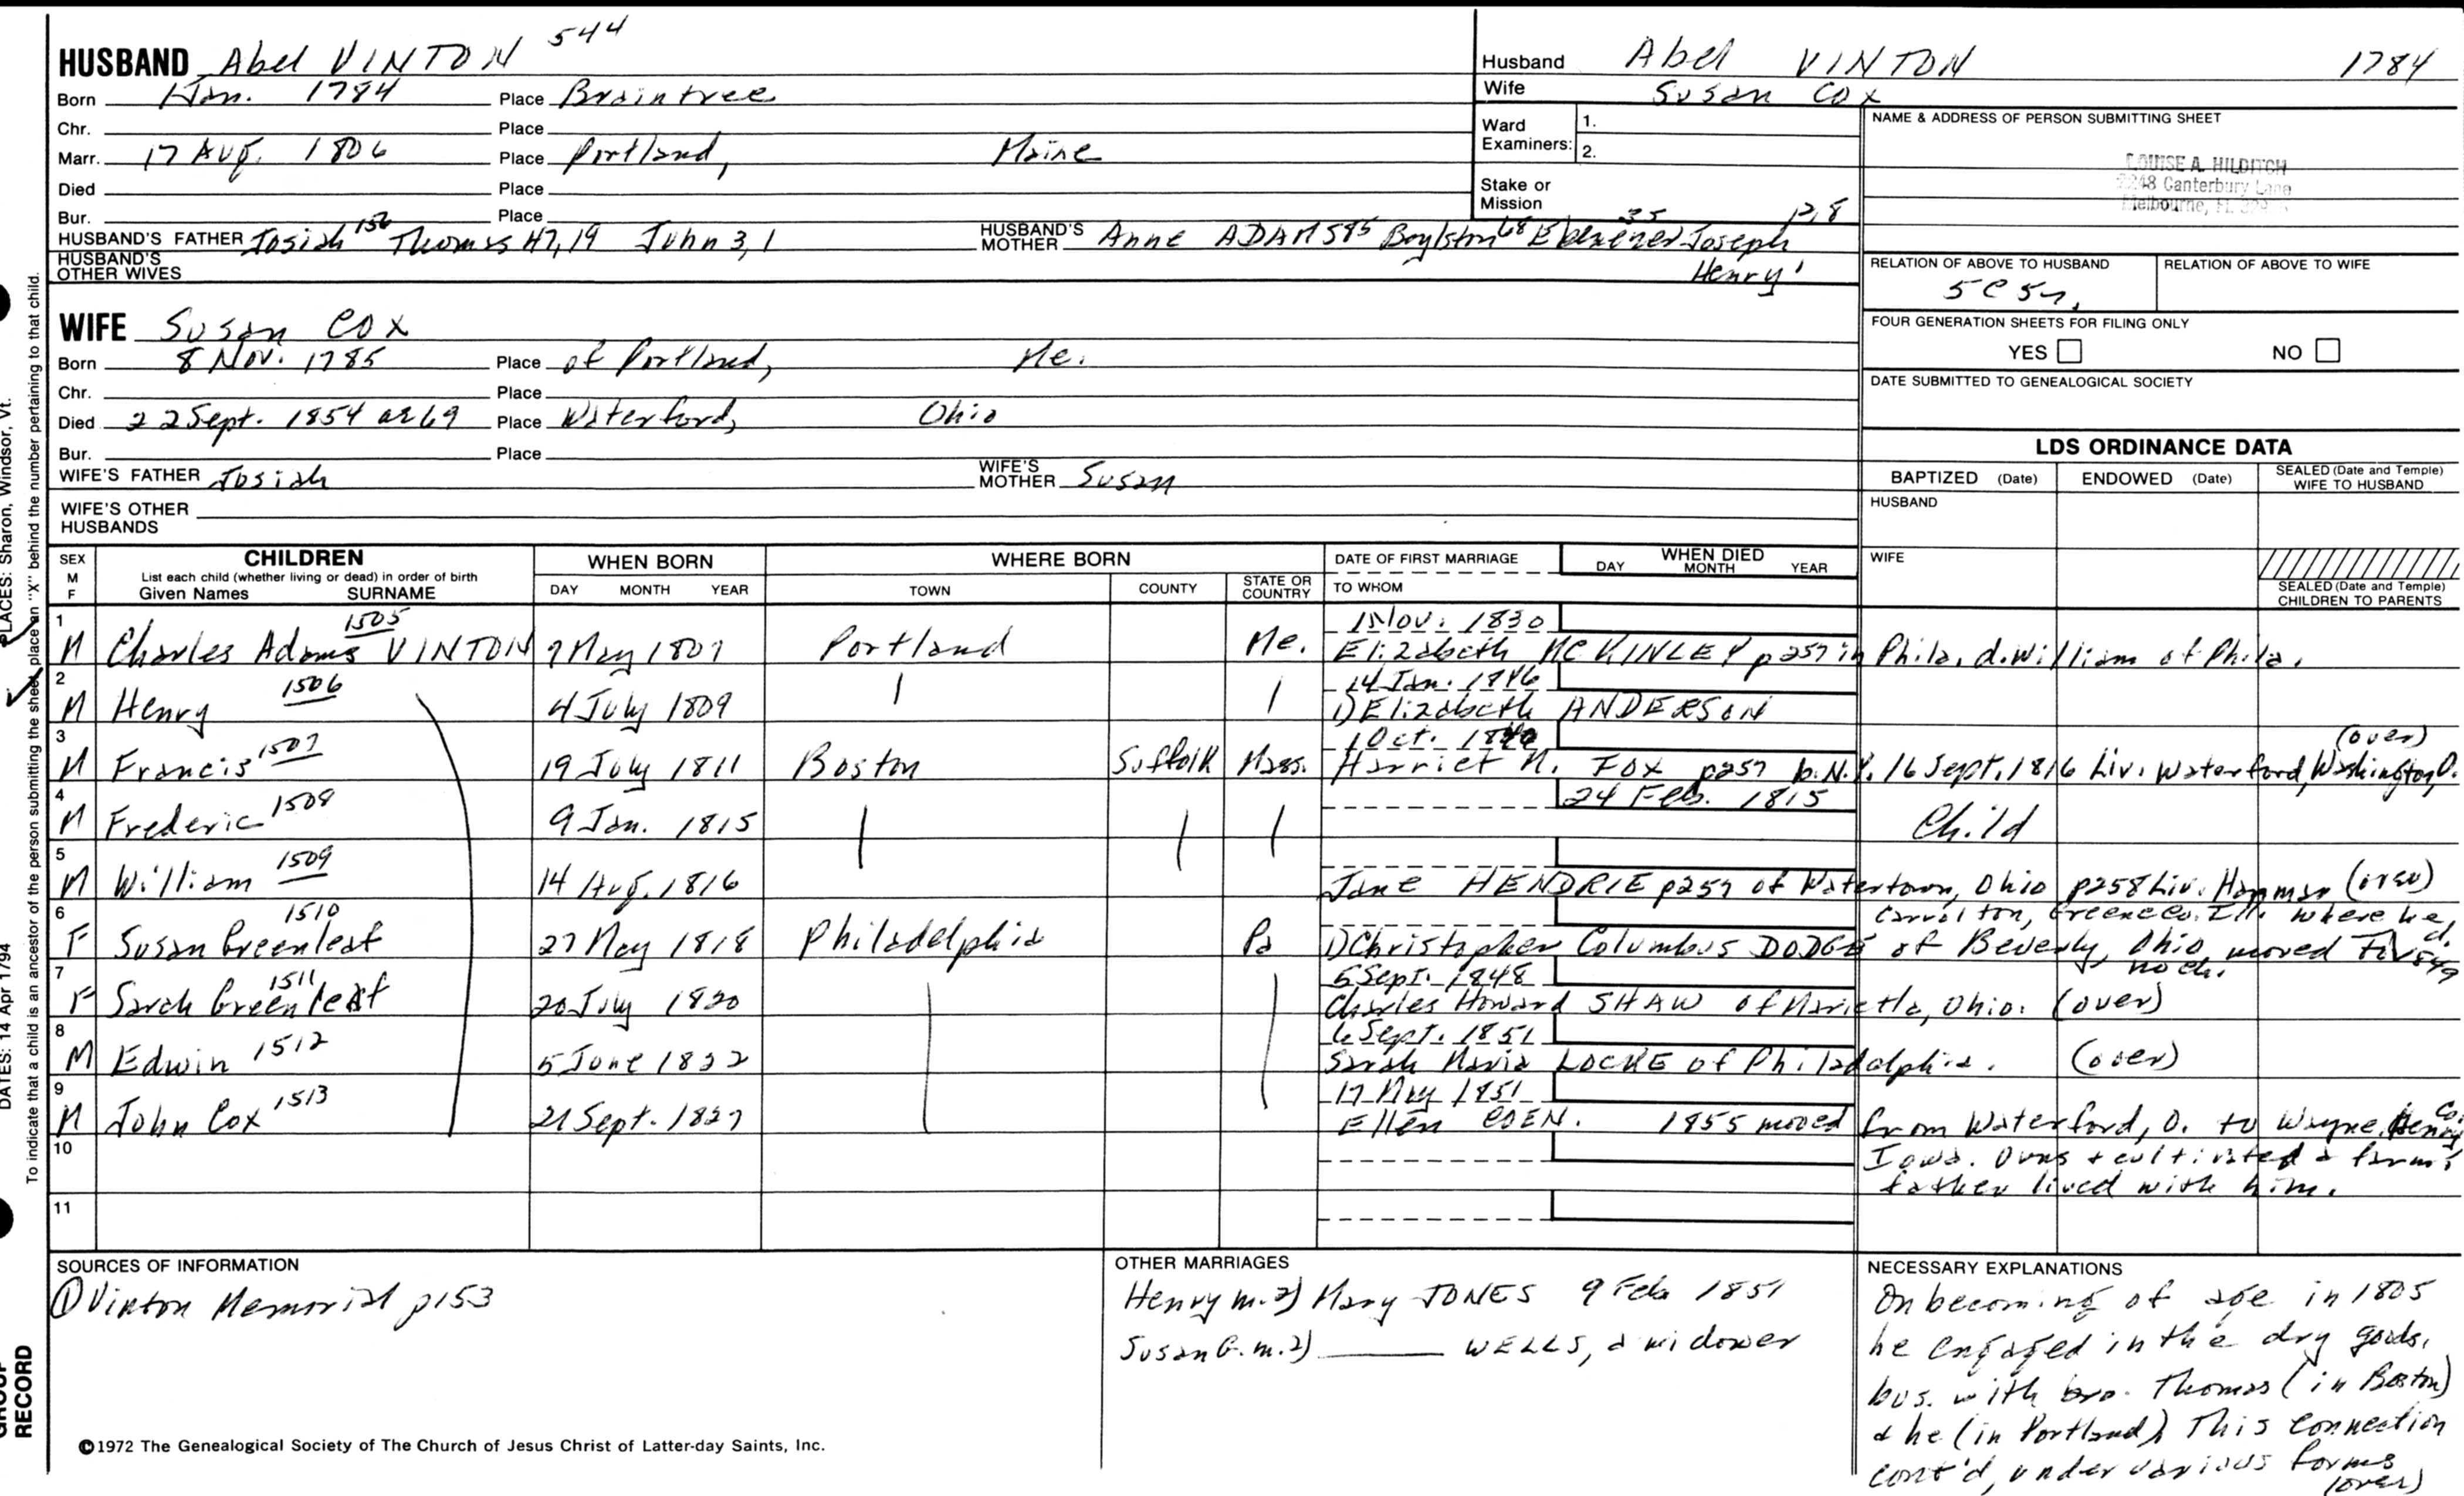 HUSBAND Abel VINTON 544
Born 1 Jan. 1784 Place Braintree
Chr. Place
Marr. 17 Aug. 1806 Place Portland, Maine
Died Place
Bur. Place
HUSBAND'S FATHER Josiah 156 Thomas 47, 19 John 3, 1 HUSBAND'S MOTHER Anne ADAMS 85 Boylston 68 Ebenezer 35 Joseph P, 8
Henry 1
HUSBAND'S OTHER WIVES
WIFE Susan Cox
Born 8 Nov. 1785 Place of Portland, Me.
Chr. Place
Died 22 Sept. 1854 ae 69 Place Waterford, Ohio
Bur. Place
WIFE'S FATHER Josiah WIFE'S MOTHER Susan
WIFE'S OTHER HUSBANDS
Husband Abel VINTON 1784
Wife Susan Cox
Ward Examiners: 1.
2.
Stake or Mission
NAME & ADDRESS OF PERSON SUBMITTING SHEET
LOUISE A. HILDITCH
Canterbury Lane
Melbourne, FL
RELATION OF ABOVE TO HUSBAND RELATION OF ABOVE TO WIFE
5C 5r,
FOUR GENERATION SHEETS FOR FILING ONLY
YES NO
DATE SUBMITTED TO GENEALOGICAL SOCIETY
LDS ORDINANCE DATA
BAPTIZED (Date) ENDOWED (Date) SEALED (Date and Temple) WIFE TO HUSBAND
HUSBAND
WIFE
SEALED (Date and Temple) CHILDREN TO PARENTS
SEX M F CHILDREN List each child (whether living or dead) in order of birth Given Names SURNAME
WHEN BORN DAY MONTH YEAR
WHERE BORN TOWN COUNTY STATE OR COUNTRY
DATE OF FIRST MARRIAGE TO WHOM
WHEN DIED DAY MONTH YEAR
1 1505 1 Nov. 1830
M Charles Adams VINTON 7 May 1807 Portland Me. Elizabeth McKINLEY p257 in Phila, d. William of Phila.
2 1506 14 Jan. 1846
M Henry 4 July 1809 1) Elizabeth ANDERSON
3 1507 1 Oct. 1840 (over)
M Francis 19 July 1811 Boston Suffolk Mass. Harriet M. FOX p257 b. N.Y. 16 Sept. 1816 Liv. Waterford, Washington, O.
4 1508 24 Feb. 1815
M Frederic 9 Jan. 1815 Child
5 1509
M William 14 Aug. 1816 Jane HENDRIE p257 of Watertown, Ohio p258 Liv. Hamman (over)
6 1510 Carrolton, Greene Co. Ill. where he d.
F Susan Greenleaf 27 May 1818 Philadelphia Pa 1) Christopher Columbus DODGE of Beverly, Ohio, moved to 1849
no ch.
7 1511 5 Sept. 1848
F Sarah Greenleaf 20 July 1820 Charles Howard SHAW of Marietta, Ohio. (over)
8 1512 6 Sept. 1851
M Edwin 5 June 1822 Sarah Maria LOCKE of Philadelphia. (over)
9 1513 17 May 1851
M John Cox 21 Sept. 1827 Ellen COEN. 1855 moved from Waterford, O. to Wayne, Henry Co.
10 Iowa. Owns + cultivated a farm;
father lived with him.
11
SOURCES OF INFORMATION
① Vinton Memorial p153
OTHER MARRIAGES
Henry m. 2) Mary JONES 9 Feb 1851
Susan G. m. 2) WELLS, a widower
NECESSARY EXPLANATIONS
On becoming of age in 1805
he engaged in the dry goods,
bus. with bro. Thomas (in Boston)
& he (in Portland) This connection
cont'd, under various forms
(over)
©1972 The Genealogical Society of The Church of Jesus Christ of Latter-day Saints, Inc.
PLACES: Sharon, Windsor, Vt.
DATES: 14 Apr 1794
To indicate that a child is an ancestor of the person submitting the sheet, place an "X" behind the number pertaining to that child.
GROUP
RECORD